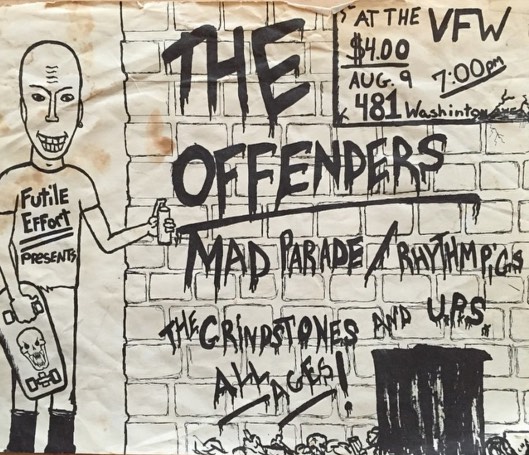 THE
OFFENDERS
MAD PARADE / RHYTHM PIGS
THE GRINDSTONES AND U.P.S
ALL AGES!
AT THE VFW
$4.00
AUG. 9 7:00pm
481 Washinton
FUTILE
EFFORT
PRESENTS